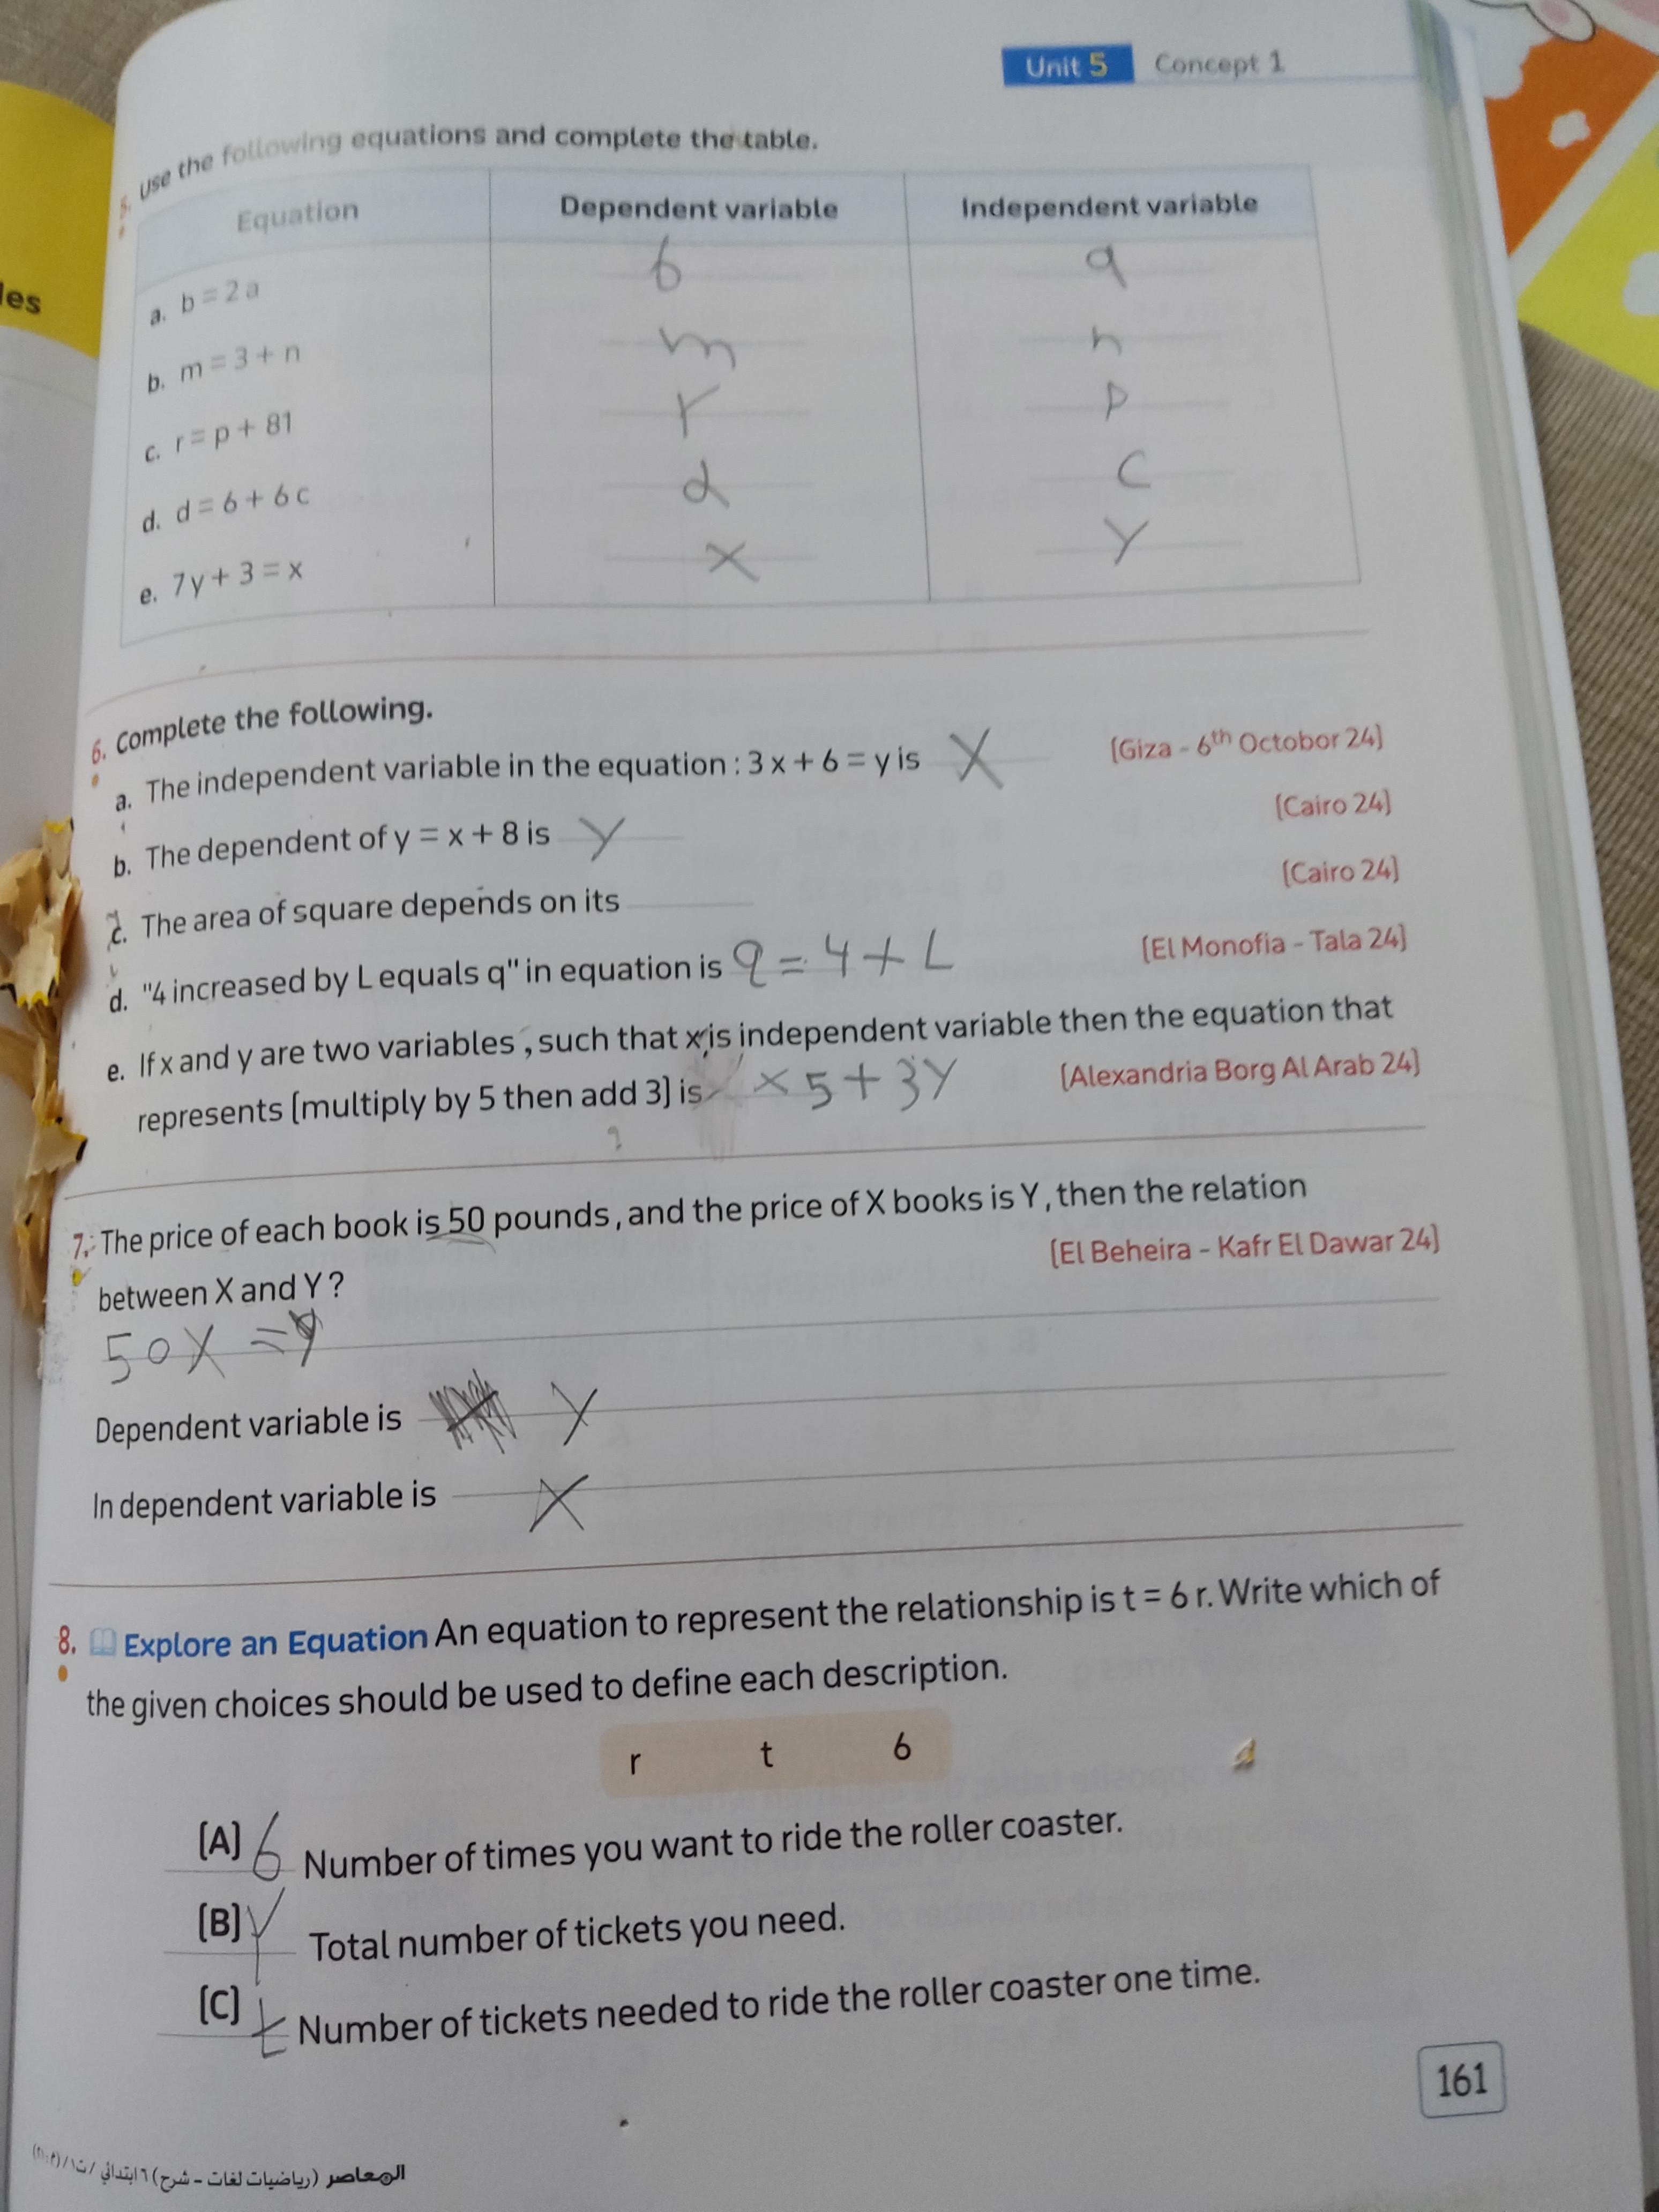 les
Unit 5 Concept 1
5. Use the following equations and complete the table.
Equation Dependent variable Independent variable
a. b = 2 a 6 a
b. m = 3 + n m n
c. r = p + 81 r P
d. d = 6 + 6 c d C
e. 7 y + 3 = x x Y
6. Complete the following.
a. The independent variable in the equation : 3 x + 6 = y is X (Giza - 6th Octobor 24)
b. The dependent of y = x + 8 is Y (Cairo 24)
c. The area of square depends on its (Cairo 24)
d. "4 increased by L equals q" in equation is q = 4 + L (El Monofia - Tala 24)
e. If x and y are two variables , such that x is independent variable then the equation that
represents (multiply by 5 then add 3) is x 5 + 3 y (Alexandria Borg Al Arab 24)
7. The price of each book is 50 pounds , and the price of X books is Y , then the relation
between X and Y ? (El Beheira - Kafr El Dawar 24)
50X = Y
Dependent variable is Y
In dependent variable is X
8. Explore an Equation An equation to represent the relationship is t = 6 r. Write which of
the given choices should be used to define each description.
r t 6
(A) 6 Number of times you want to ride the roller coaster.
(B) r Total number of tickets you need.
(C) t Number of tickets needed to ride the roller coaster one time.
161
المعاصر (رياضيات لغات - شرح) ٦ ابتدائي / ت١ /